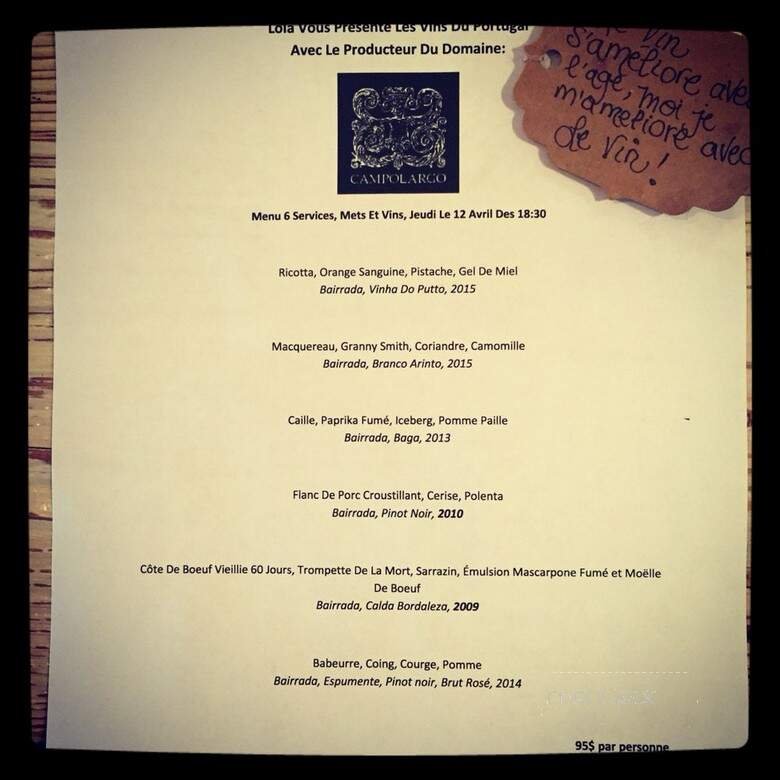 Lola Vous Présente Les Vins Du Portugal
Avec Le Producteur Du Domaine:
vin
s'améliore avec
l'age, moi je
m'ameliore avec
de vin!
CAMPOLARGO
Menu 6 Services, Mets Et Vins, Jeudi Le 12 Avril Des 18:30
Ricotta, Orange Sanguine, Pistache, Gel De Miel
Bairrada, Vinha Do Putto, 2015
Macquereau, Granny Smith, Coriandre, Camomille
Bairrada, Branco Arinto, 2015
Caille, Paprika Fumé, Iceberg, Pomme Paille
Bairrada, Baga, 2013
Flanc De Porc Croustillant, Cerise, Polenta
Bairrada, Pinot Noir, 2010
Côte De Boeuf Vieillie 60 Jours, Trompette De La Mort, Sarrazin, Émulsion Mascarpone Fumé et Moëlle
De Boeuf
Bairrada, Calda Bordaleza, 2009
Babeurre, Coing, Courge, Pomme
Bairrada, Espumente, Pinot noir, Brut Rosé, 2014
95$ par personne